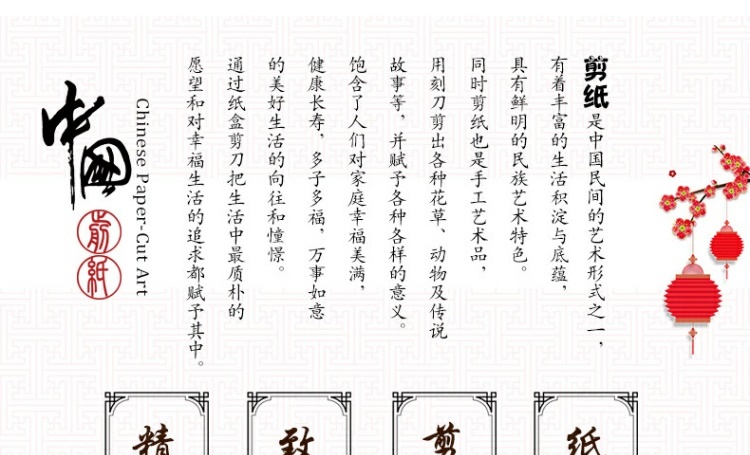 剪纸是中国民间的艺术形式之一，
有着丰富的生活积淀与底蕴，
具有鲜明的民族艺术特色。
同时剪纸也是手工艺术品，
用刻刀剪出各种花草、动物及传说
故事等，并赋予各种各样的意义。
饱含了人们对家庭幸福美满，
健康长寿，多子多福，万事如意
的美好生活的向往和憧憬。
通过纸盒剪刀把生活中最质朴的
愿望和对幸福生活的追求都赋予其中。
Chinese Paper-Cut Art
中國
剪紙
精致剪纸